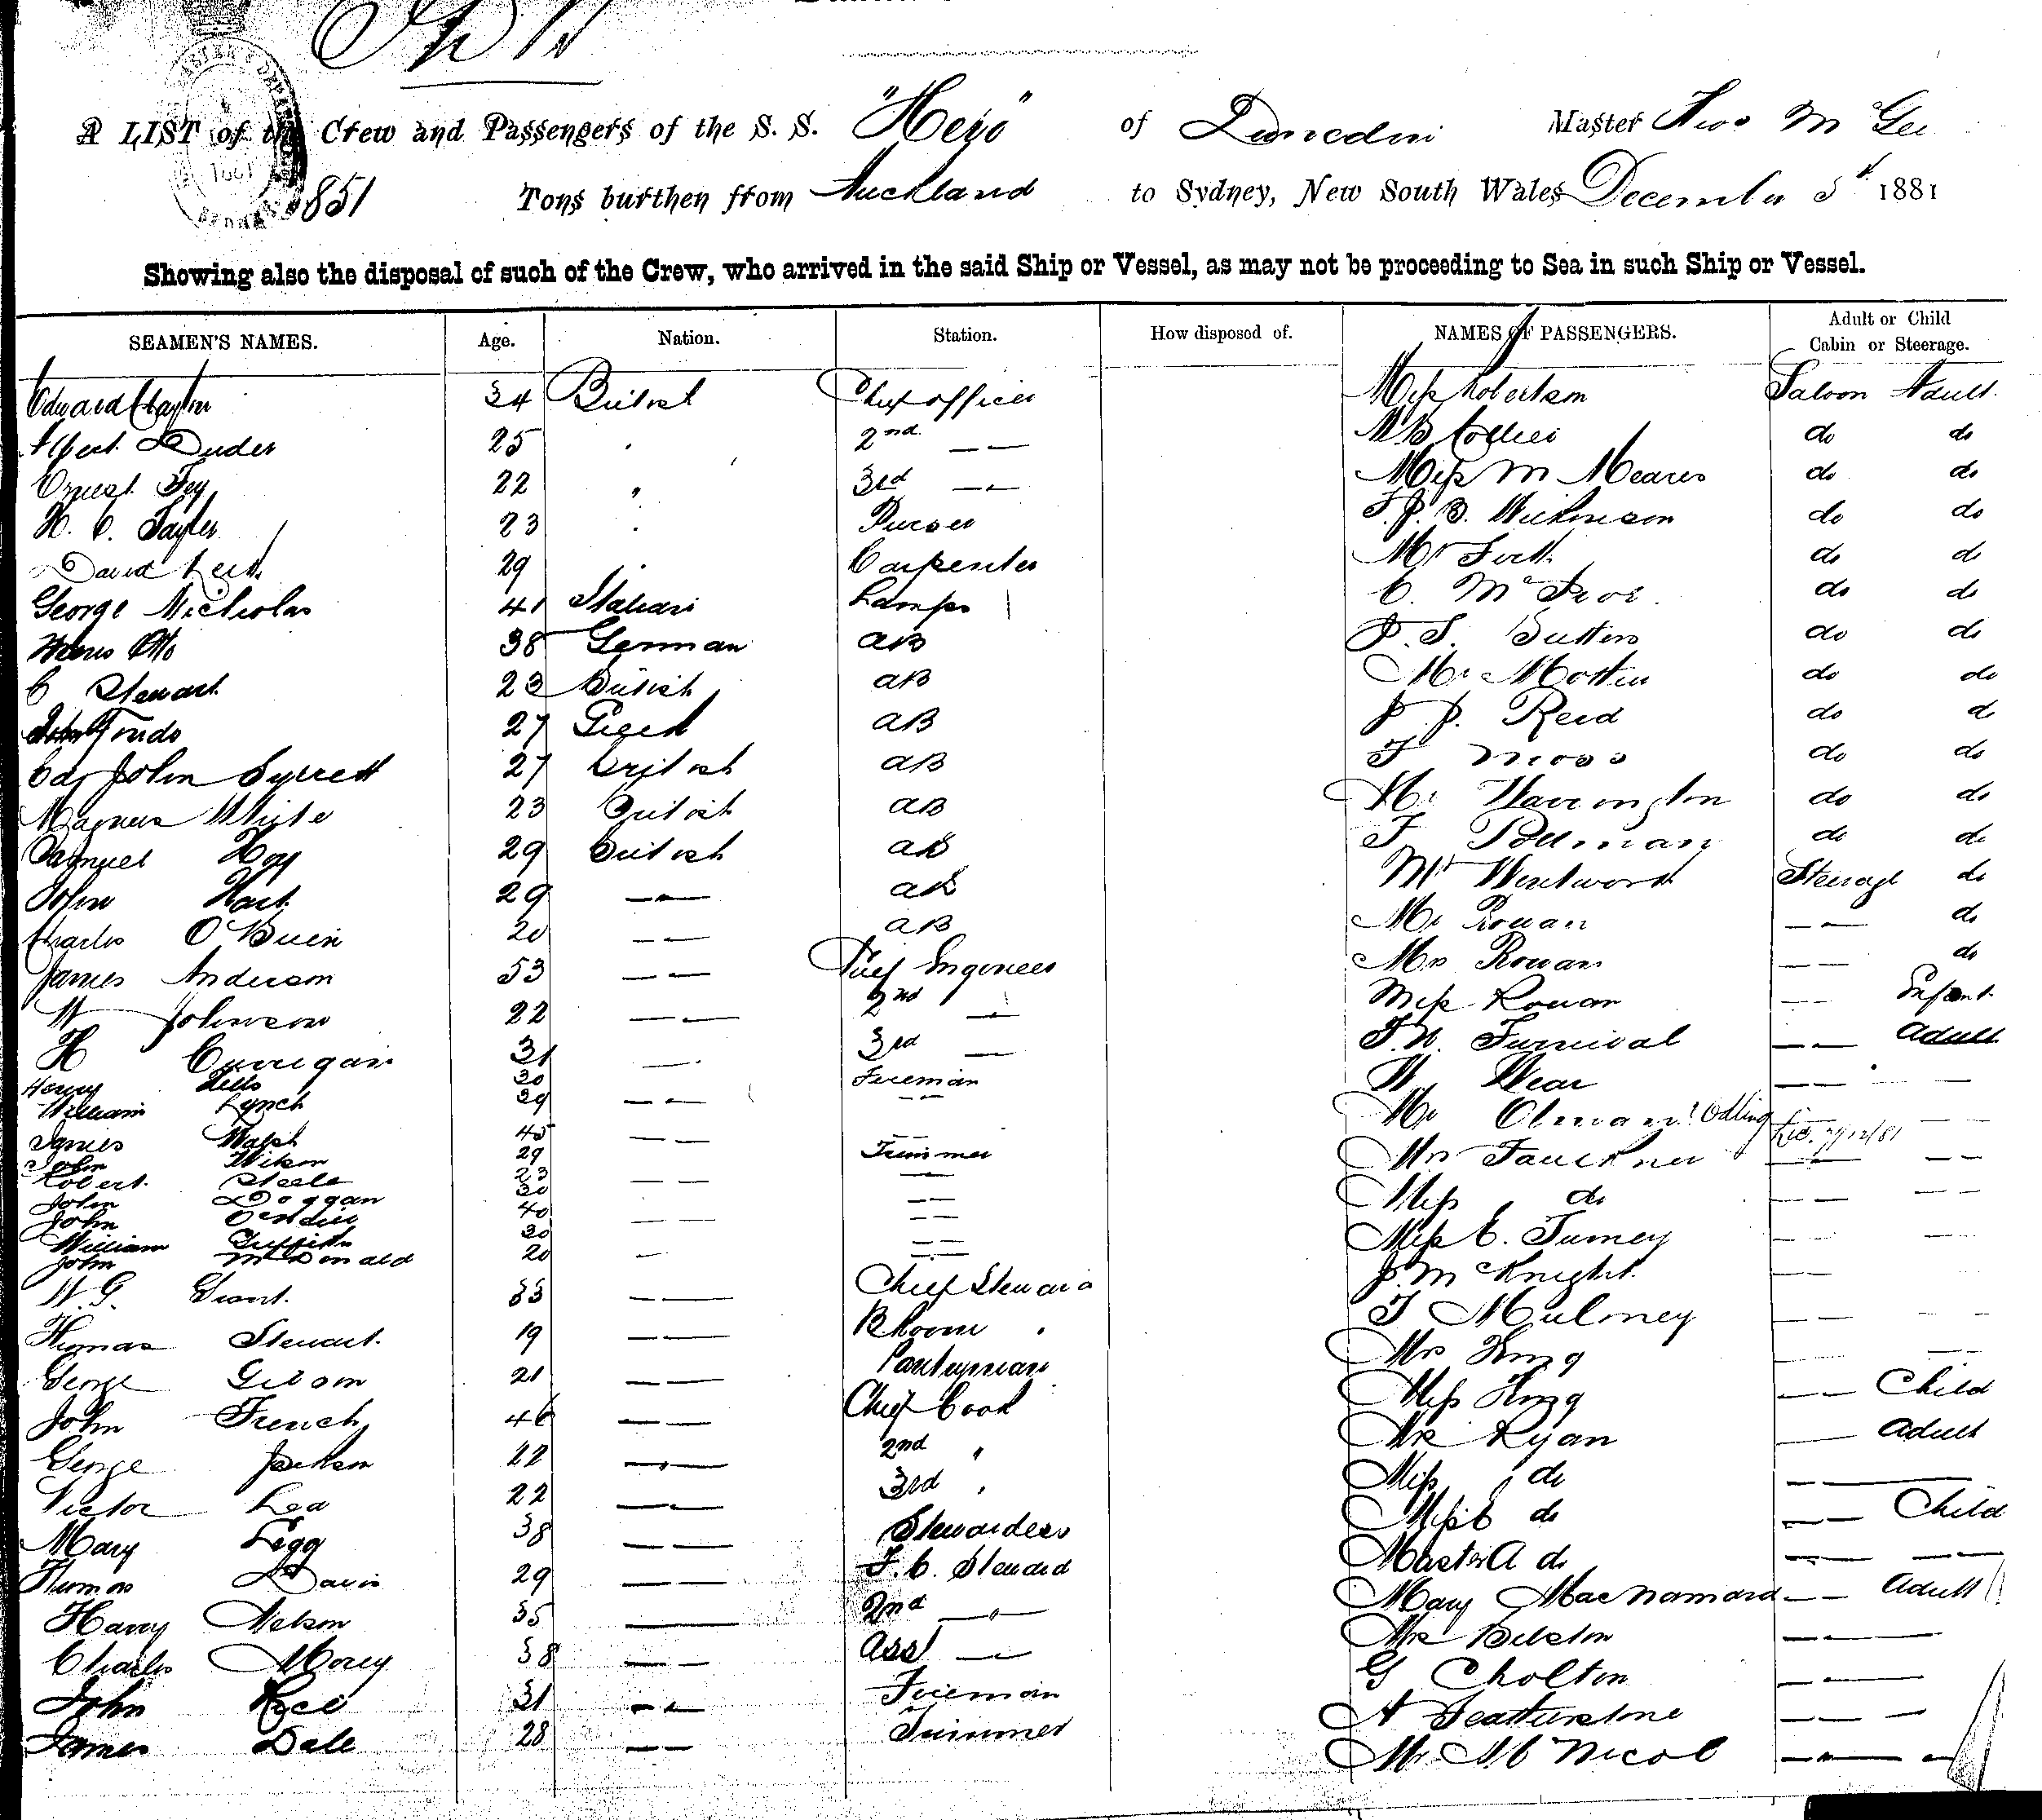 A LIST of the Crew and Passengers of the S. S. "Hero" of Dunedin Master Thos McGee
851 Tons burthen from Auckland to Sydney, New South Wales December 5th 1881
Showing also the disposal of such of the Crew, who arrived in the said Ship or Vessel, as may not be proceeding to Sea in such Ship or Vessel.
SEAMEN'S NAMES. Age. Nation. Station. How disposed of. NAMES OF PASSENGERS. Adult or Child Cabin or Steerage.
Edward Clayton 34 British Chief officer Miss Robertson Saloon Adult.
Albert Duder 25 2nd — — Collier do do
Ernest Fey 22 " 3rd — — Miss M Meares do do
H. C. Tayler 23 Purser F. J. B. Wilkinson do do
David 29 Carpenter Mr do do
George Nicholas 41 Italian Lamps C. do do
Otto 38 German AB Sutton do do
C Stewart 23 British AB Mr do do
John 27 Greek AB J. J. Reid do do
John Syrrett 27 British AB F Moss do do
Magnus White 23 British AB Mr Harrington do do
Samuel Hoy 29 British AB F Pollman do do
John Hart 29 — — AB Mr Wentworth Steerage do
Charles O'Brien 20 — — AB Mr Rowan — — do
James Anderson 53 — — Chief Engineer Mrs Rowan — — do
W Johnson 22 — — 2nd — Miss Rowan — — Infant
H Corrigan 31 — — 3rd — Furnival — — Adult
Henry 30 Fireman W Wear — — — —
William Lynch 29 — — — — Mr Olman? Odling — —
James Walsh 45 — — — —
John Wilson 29 Trimmer Mrs Faulkner — — — —
Robert Steele 23 — — — —
John Doggan 30 — — Miss do — — — —
John 40 — — — —
William Griffiths 30 — — Miss C. Turney — — — —
John McDonald 20 — — — J. McKnight — — — —
W. G. Grant. 33 — — Chief Steward T Mulroney — — — —
Thomas Stewart. 19 — — B Room Mrs King — — — —
George Gibson 21 — — Pantryman Miss King — — Child
John French 46 — — Chief Cook Mrs Ryan — — Adult
George Jackson 22 — — 2nd " Miss do — —
Victor Lea 22 — — 3rd " Miss C do — — Child
Mary Legg 38 — — Stewardess Master A do — — — —
Thomas Davis 29 — — F. C. Steward Mary MacNamara — — Adult
Harry Nelson 35 — — 2nd — — Mrs — —
Charles Morey 38 — — Asst — — G Cholton — —
John 31 — — Fireman A Featherstone — — —
James Dale 28 — — Trimmer Mr McNicol — — —